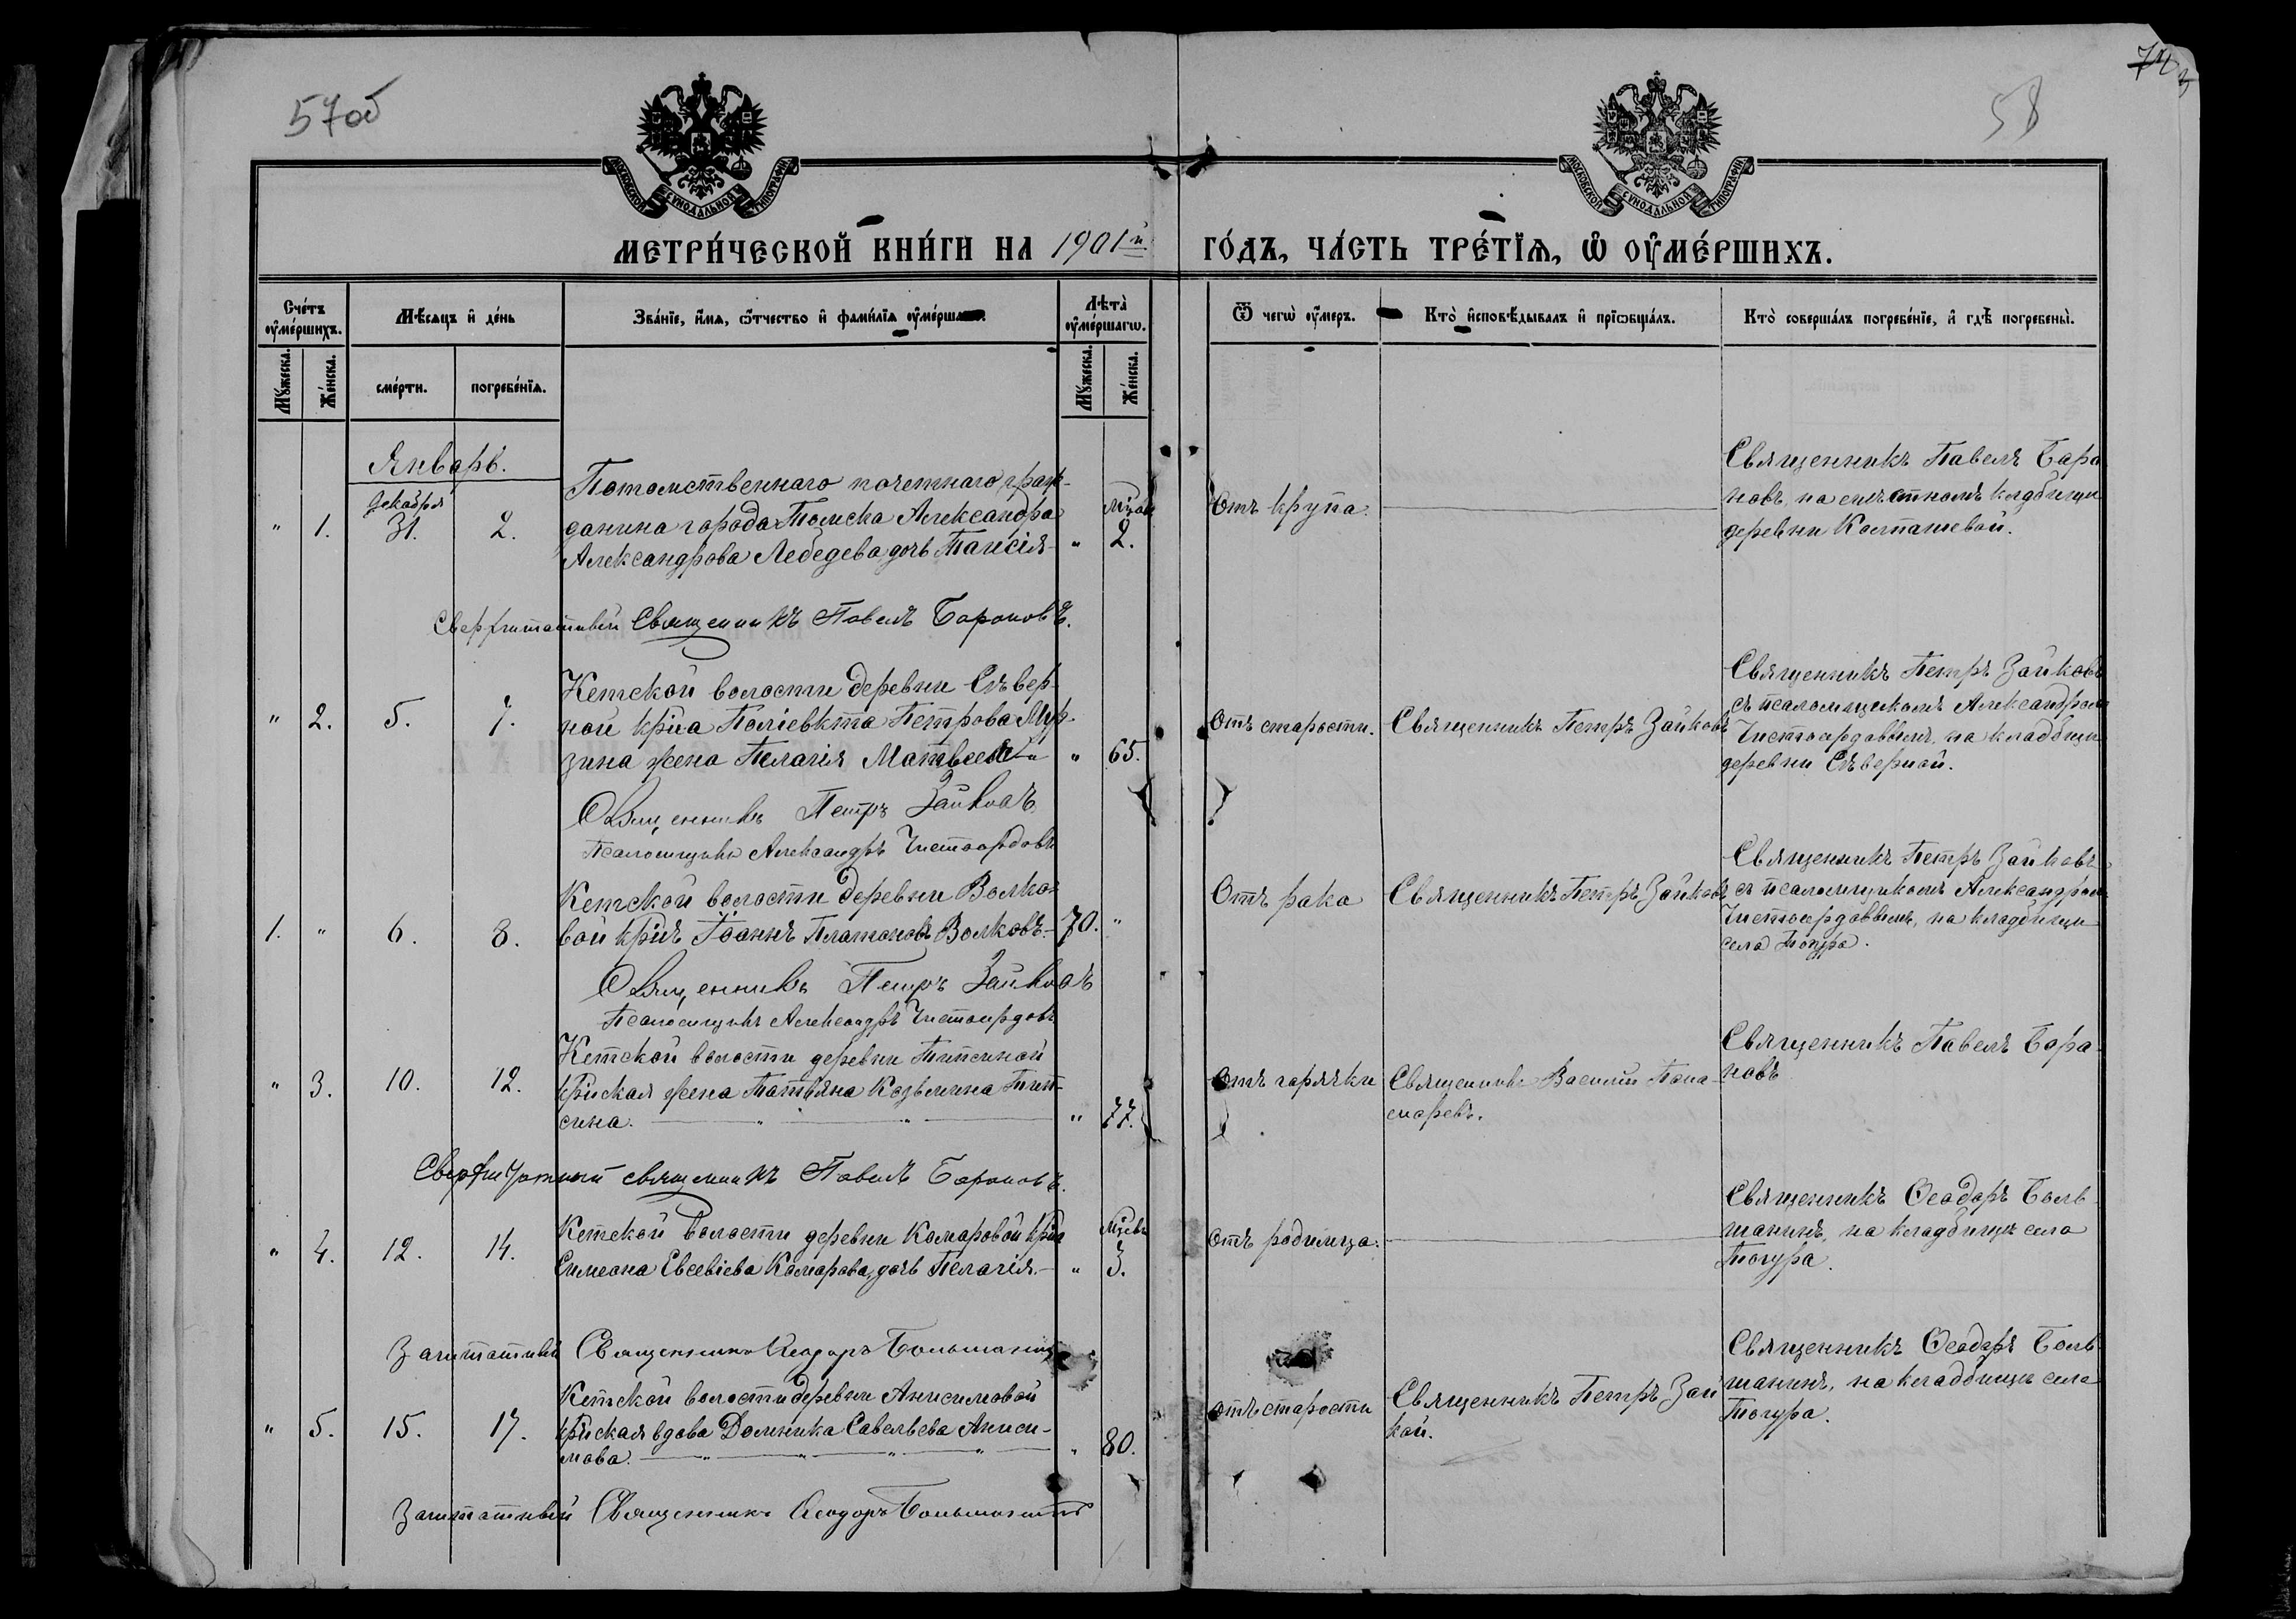 57об
58
74
МОСКОВСКОЙ СѴНОДАЛЬНОЙ ТИПОГРАФІИ
МОСКОВСКОЙ СѴНОДАЛЬНОЙ ТИПОГРАФІИ
МЕТРИ́ЧЕСКОЙ КНИ́ГИ НА 1901й ГО́ДЪ, ЧА́СТЬ ТРЕ́ТІѦ, Ѡ҆ ОУ҆МЕ́РШИХЪ.
Сче́тъ оу҆ме́ршихъ.
Мꙋ́жеска.
Же́нска.
Мѣ́сяцъ и҆ де́нь
сме́рти.
погребе́нїѧ.
Зва́нїе, и҆́мѧ, ѻ҆́тчество и҆ фами́лїѧ оу҆ме́ршагѡ.
Лѣта̀ оу҆ме́ршагѡ.
Мꙋ́жеска.
Же́нска.
Ѿ чегѡ̀ оу҆́меръ.
Кто̀ и҆сповѣ́дывалъ и҆ прїѡбща́лъ.
Кто̀ соверша́лъ погребе́нїе, и҆ гдѣ̀ погребены̀.
Январь.
" 1.
Декабря
31. 2.
Потомственнаго почетнаго граж-
данина города Томска Александра
Александрова Лебедева дочь Таисія
" 2.
Отъ крупа.
Священникъ Павелъ Бара
новъ, на мѣстномъ кладбищи
деревни Колпашевой.
Сверхштатный Священникъ Павелъ Барановъ.
" 2. 5. 7.
Кетской волости деревни Сѣвер-
ной кр҃на Поліевкта Петрова Мур-
зина жена Пелагія Матвеева
" 65.
Отъ старости.
Священникъ Петръ Зайковъ
Священникъ Петръ Зайковъ
съ псаломщикомъ Александромъ
Чистосердовымъ, на кладбищи
деревни Сѣверной.
Священникъ Петръ Зайковъ
Псаломщикъ Александръ Чистосердовъ
1. " 6. 8.
Кетской волости деревни Волко-
вой кр҃нъ Іоаннъ Платоновъ Волковъ.
70. "
Отъ рака
Священникъ Петръ Зайковъ
Священникъ Петръ Зайковъ
съ псаломщикомъ Александромъ
Чистосердовымъ, на кладбищи
села Тогура.
Священникъ Петръ Зайковъ
Псаломщикъ Александръ Чистосердовъ
" 3. 10. 12.
Кетской волости деревни Типсиной
кр҃нская жена Татьяна Козьмина Тип-
сина.
" 77.
Отъ горячки
Священникъ Василій Пона-
маревъ.
Священникъ Павелъ Бара-
новъ
Сверхштатный священникъ Павелъ Барановъ.
" 4. 12. 14.
Кетской волости деревни Комаровой кр҃на
Симеона Евсевіева Комарова, дочь Пелагія.
" 3.
Отъ родимца.
Священникъ Ѳеодоръ Боль-
шанинъ, на кладбищѣ села
Тогура.
Заштатный Священникъ Ѳеодоръ Большанинъ
" 5. 15. 17.
Кетской волости деревни Анисимовой
кр҃нская вдова Домника Савельева Аниси-
мова.
" 80.
Отъ старости
Священникъ Петръ Зай
кой.
Священникъ Ѳеодоръ Боль
шанинъ, на кладбищѣ села
Тогура.
Заштатный Священникъ Ѳеодоръ Большанинъ